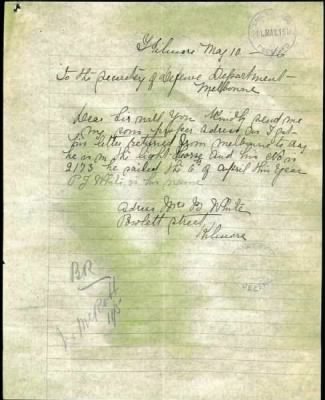 Kilmore May 10 16
To the secretary of Defence Department
Melbourne
Dear Sir will you kindly send me
my sons proper adress as I got
his letter returned from Melbourne to day
he is in the light horse and his No is
2173 he sailed the 6 of april this year
P J White is his name
adress Mrs B White
Powlett street
Kilmore
BR